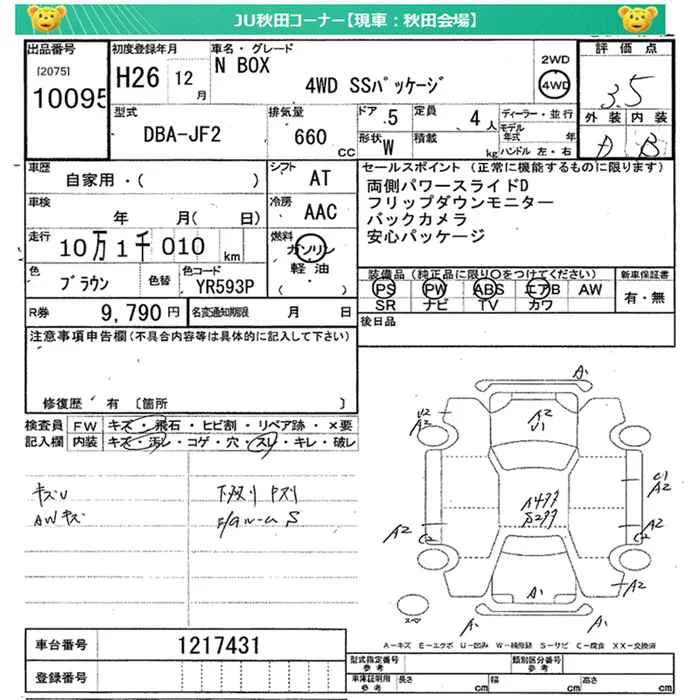 JU秋田コーナー【現車：秋田会場】
出品番号 初度登録年月 車名・グレード 評価点
[2075] H26 12月 N BOX 2WD
10095 4WD SSパッケージ 4WD 3.5
型式 排気量 ドア 5 定員 4人 ディーラー・並行 外装 内装
DBA-JF2 660CC 形状 W 積載 kg モデル年式 年 A B
ハンドル 左・右
車歴 シフト セールスポイント (正常に機能するものに限ります)
自家用・( ) AT 両側パワースライドD
車検 冷房 フリップダウンモニター
年 月( 日) AAC バックカメラ
走行 燃料 安心パッケージ
10万1千010km ガソリン
軽油
( )
色 色替 色コード 装備品(純正品に限り○をつけてください) 新車保証書
ブラウン YR593P PS PW ABS エアB AW 有・無
SR ナビ TV カワ
R券 9,790円 名変通知期限 月 日 後日品
注意事項申告欄(不具合内容等は具体的に記入して下さい)
修復歴 有 [箇所 ]
検査員 FW キズ・飛石・ヒビ割・リペア跡・×要
記入欄 内装 キズ・汚レ・コゲ・穴・スレ・キレ・破レ
キズU
AWキズ
A1
U2
A2
A2
U1
A2
A2
A2
A2
A1
A1
A1
スペア
A－キズ E－エクボ U－凹み W－補修跡 S－サビ C－腐食 XX－交換済
車台番号 1217431
登録番号
型式指定番号 参考 類別区分番号 参考
車庫証明用 参考 長さ cm 幅 cm 高さ cm